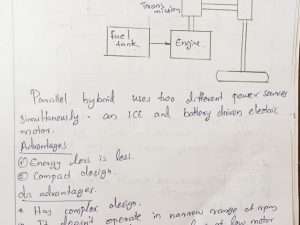 Trans
mission
fuel
tank
Engine.
Parallel hybrid uses two different power sources
simultaneously - an ICE and battery driven electric
motor.
Advantages
① Energy loss is less.
② Compact design.
dis advantages.
* Has complex design.
* It doesn't operate in narrow range of rpm
low motor